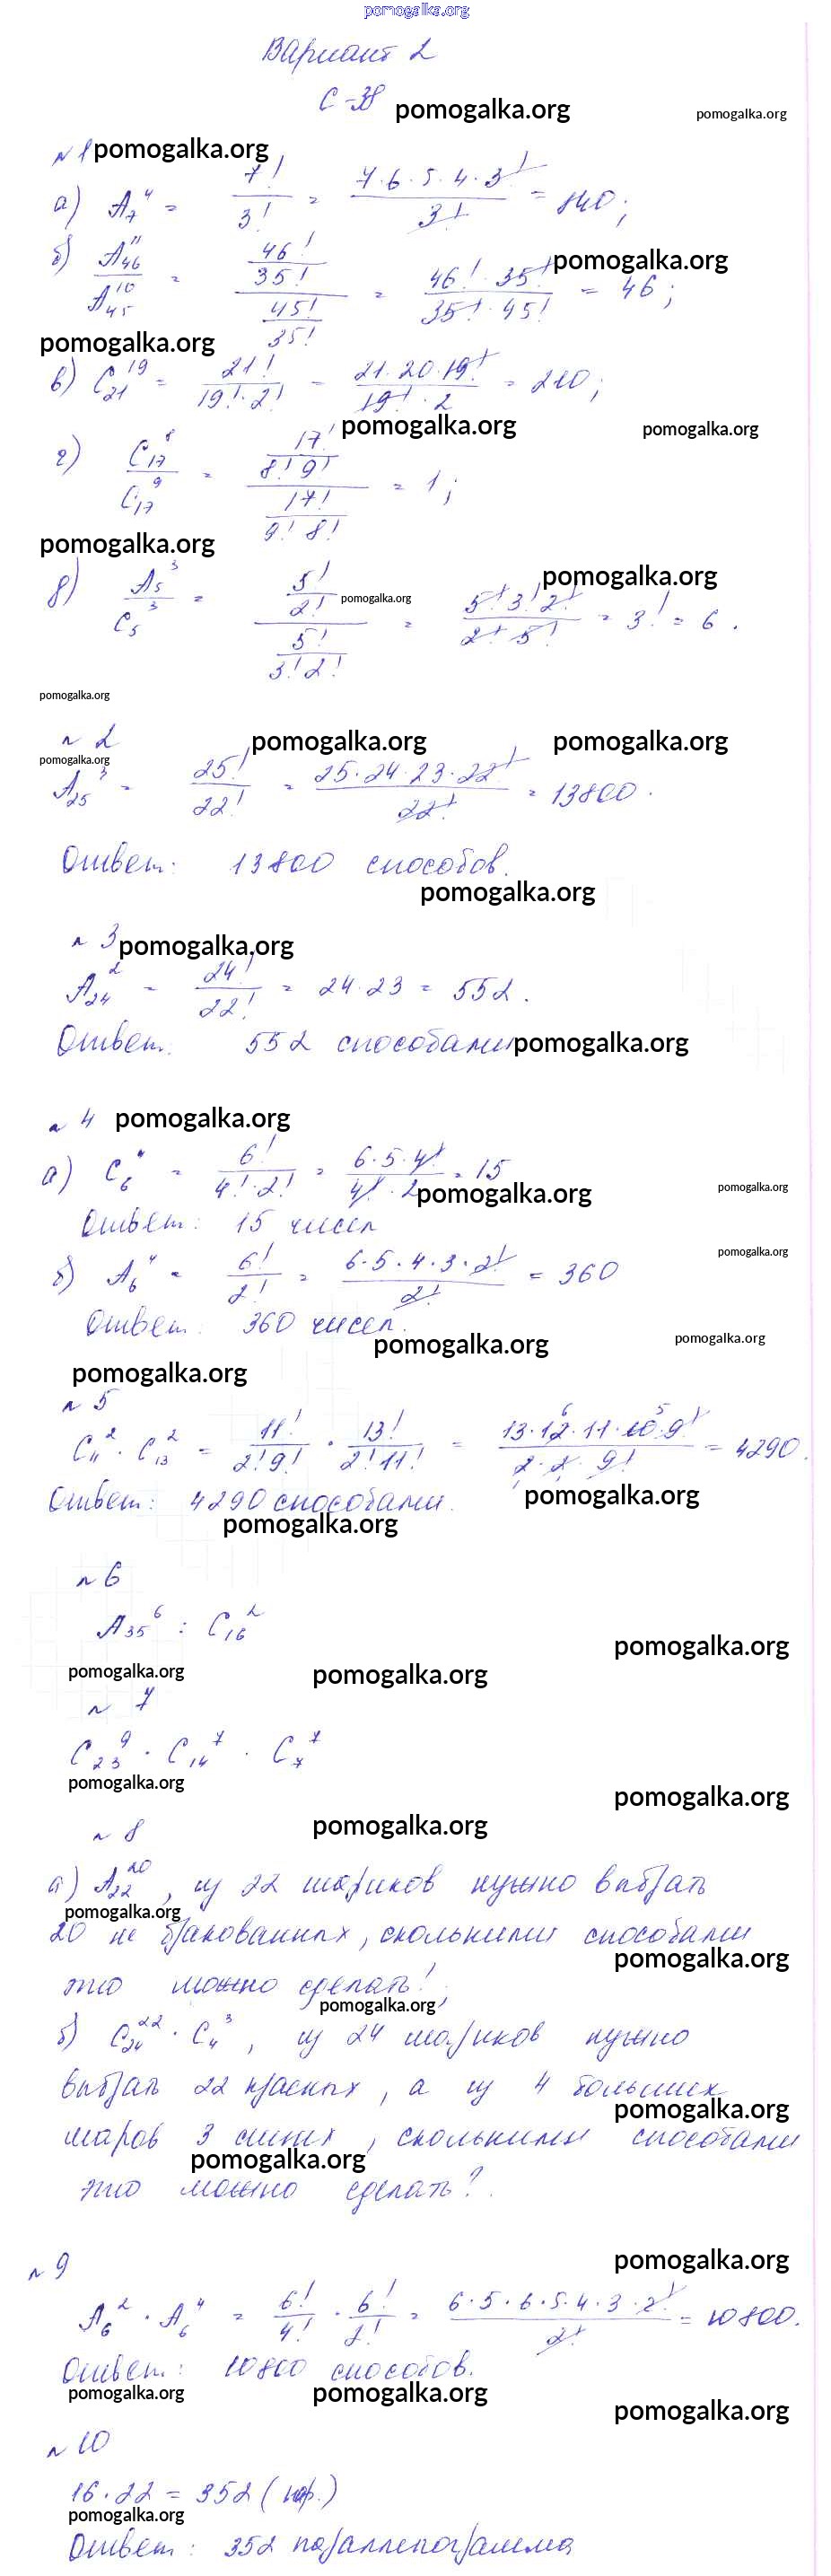 pomogalka.org
Вариант 2
С-38 pomogalka.org pomogalka.org
№1 pomogalka.org
а) A₇⁴ = 7!/3! = 7·6·5·4·3!/3! = 840;
б) A₄₆¹¹/A₄₅¹⁰ = (46!/35!)/(45!/35!) = 46!·35!/35!·45! = 46; pomogalka.org
pomogalka.org
в) C₂₁¹⁹ = 21!/19!·2! = 21·20·19!/19!·2 = 210;
pomogalka.org pomogalka.org
г) C₁₇⁸/C₁₇⁹ = (17!/8!9!)/(17!/9!8!) = 1;
pomogalka.org
д) A₅³/C₅³ = (5!/2!)/(5!/3!2!) = 5!3!2!/2!5! = 3! = 6. pomogalka.org pomogalka.org
pomogalka.org
№2 pomogalka.org pomogalka.org
pomogalka.org
A₂₅³ = 25!/22! = 25·24·23·22!/22! = 13800.
Ответ: 13800 способов.
pomogalka.org
№3 pomogalka.org
A₂₄² = 24!/22! = 24·23 = 552.
Ответ: 552 способами pomogalka.org
№4 pomogalka.org
а) C₆⁴ = 6!/4!·2! = 6·5·4!/4!·2 = 15
pomogalka.org pomogalka.org
Ответ: 15 чисел
б) A₆⁴ = 6!/2! = 6·5·4·3·2!/2! = 360 pomogalka.org
Ответ: 360 чисел.
pomogalka.org pomogalka.org
pomogalka.org
№5
C₁₁² · C₁₃² = 11!/2!9! · 13!/2!11! = 13·12·11·10·9!/2·2·9! = 4290.
Ответ: 4290 способами. pomogalka.org
pomogalka.org
№6
A₃₅⁶ : C₁₆²
pomogalka.org
pomogalka.org pomogalka.org
№7
C₂₃⁹ · C₁₄⁷ · C₇⁷
pomogalka.org pomogalka.org
pomogalka.org
№8
а) A₂₂²⁰, из 22 шариков нужно выбрать
pomogalka.org
20 не бракованных, сколькими способами
pomogalka.org
это можно сделать?
pomogalka.org
б) C₂₄²² · C₄³, из 24 шариков нужно
выбрать 22 красных, а из 4 больших
pomogalka.org
шаров 3 синих, сколькими способами
pomogalka.org
это можно сделать?
№9 pomogalka.org
A₆² · A₆⁴ = 6!/4! · 6!/2! = 6·5·6·5·4·3·2!/2! = 10800.
Ответ: 10800 способов.
pomogalka.org pomogalka.org
pomogalka.org
№10
16·22 = 352 (пар.)
pomogalka.org
Ответ: 352 параллелограмма